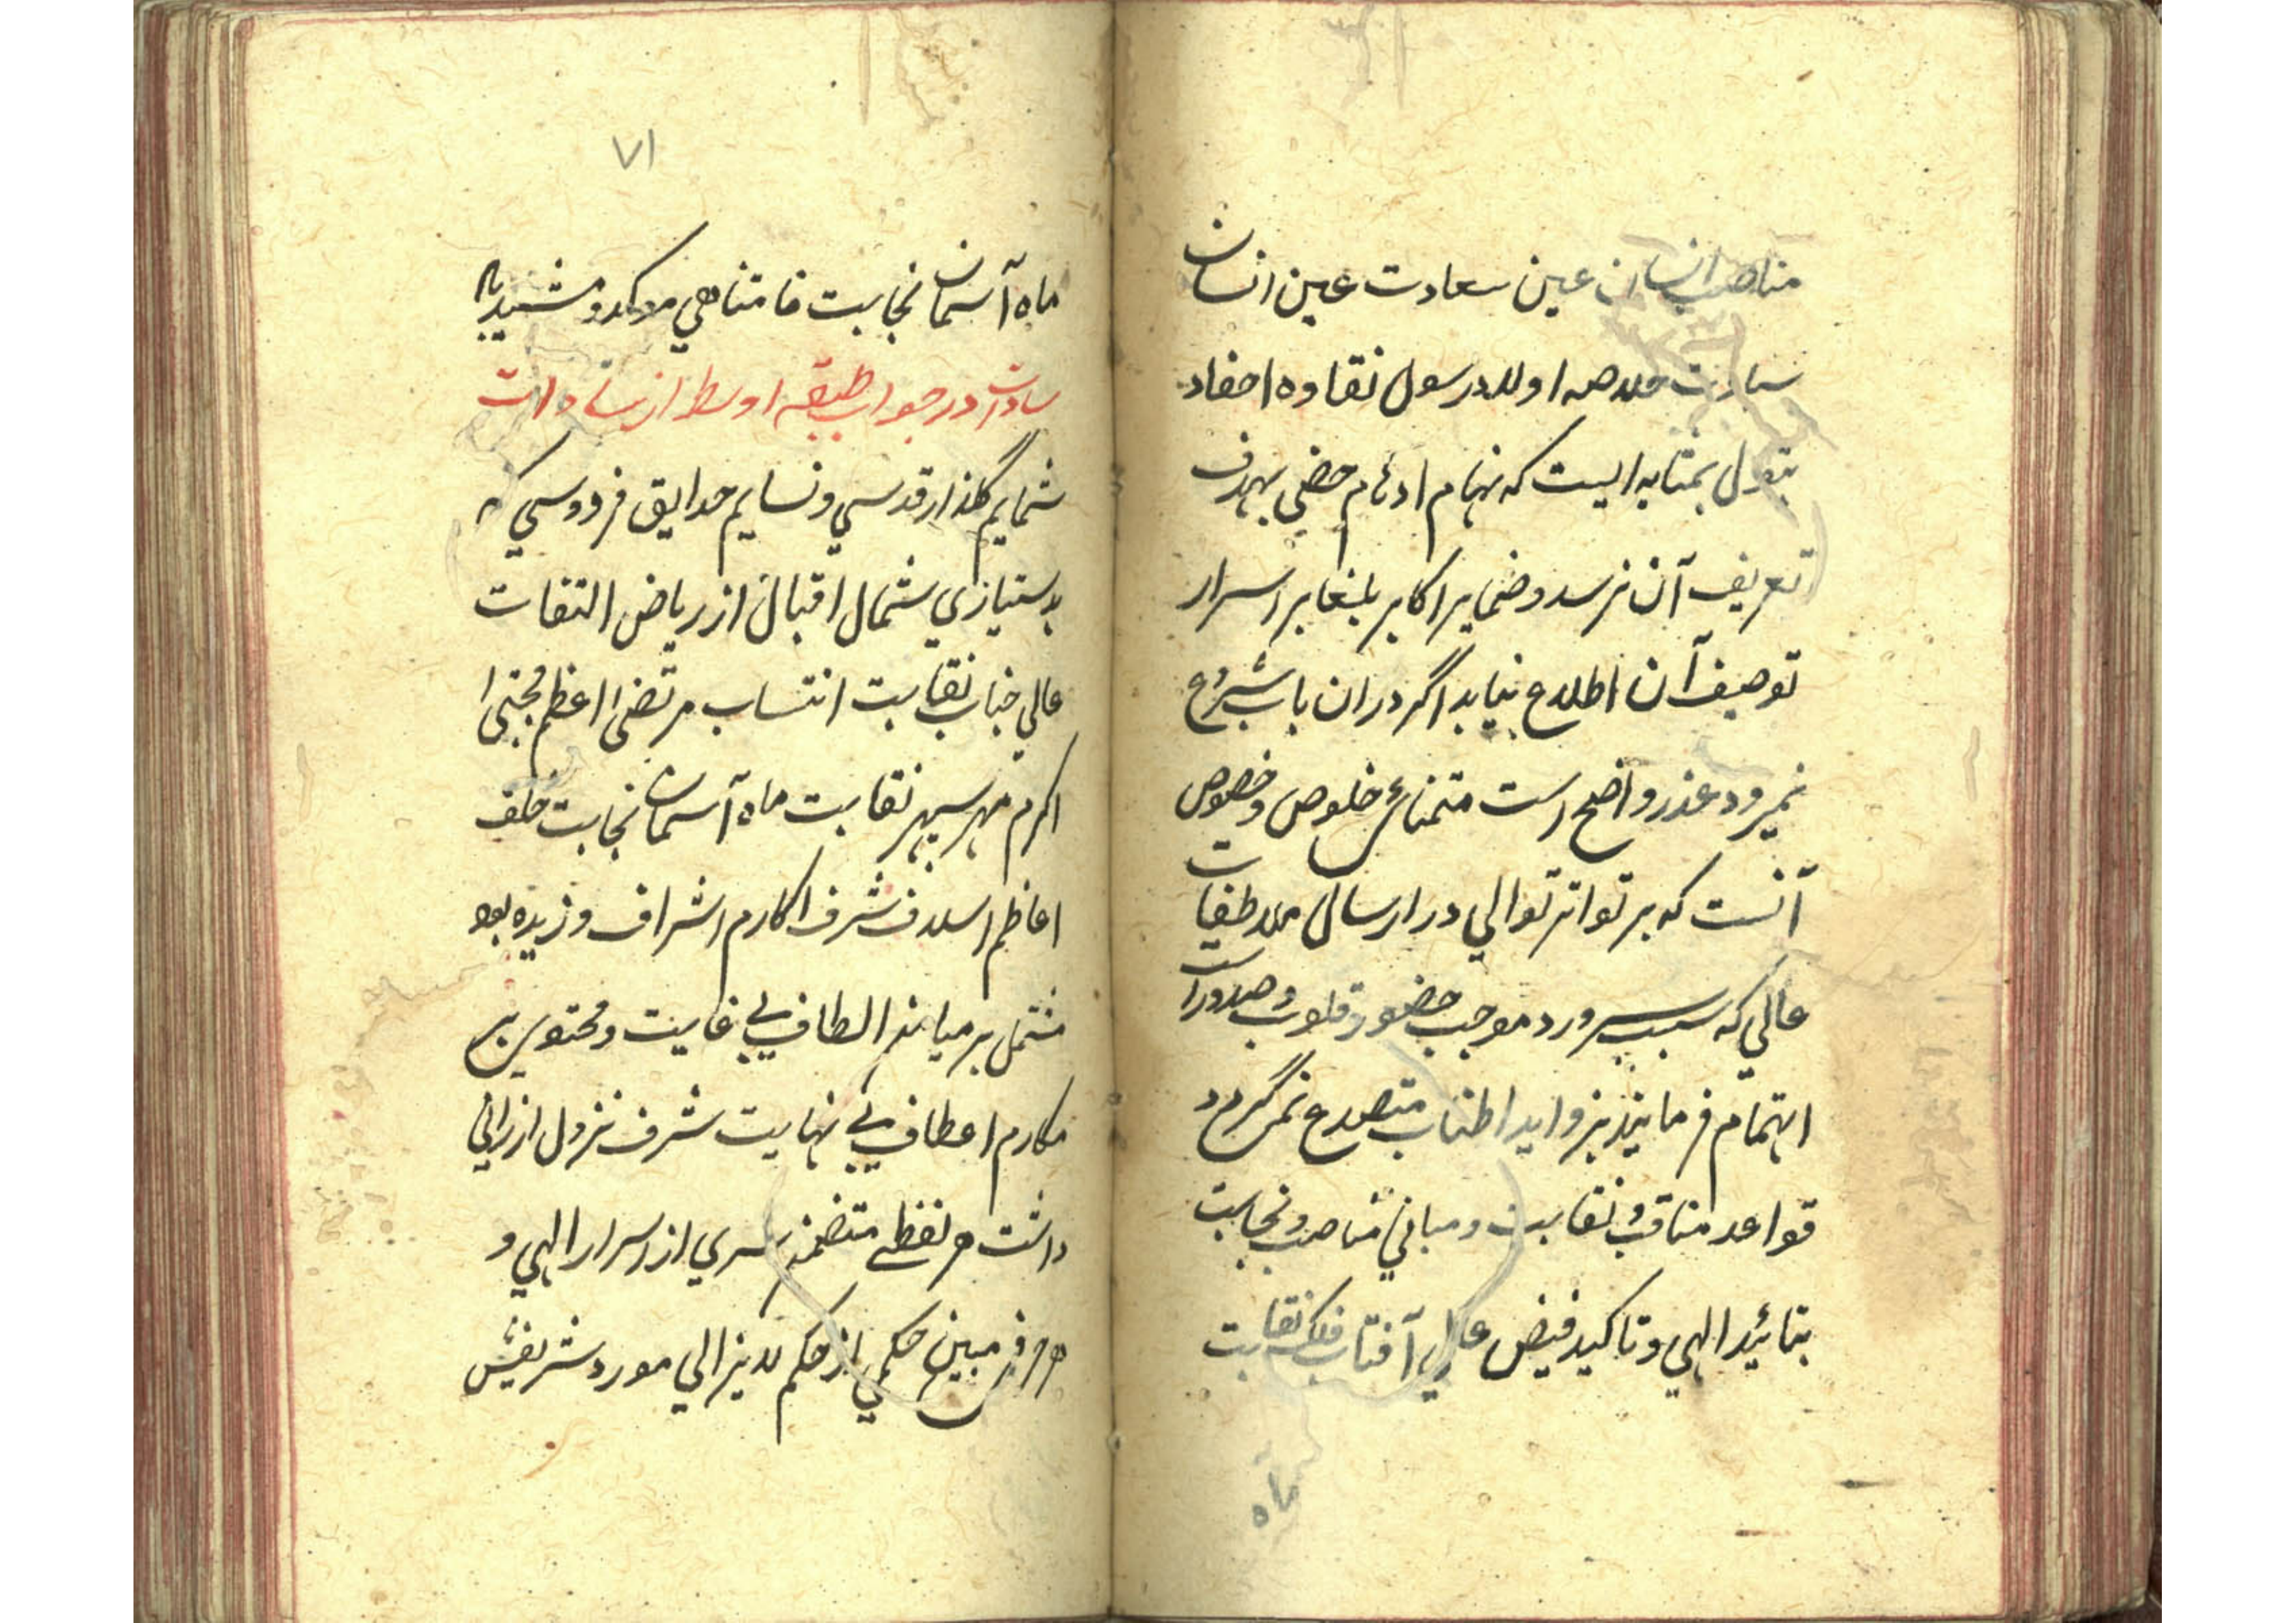 مناصب انسان عین سعادت عین انسان
سیادت خلاصه اولاد رسول نقاوه احفاد
بتول بمثابه ایست که نهام ادهام خفی بهدف
تعریف آن نرسد و ضمایر اکابر بلغا بر اسرار
توصیف آن اطلاع نیابد اگر در ان باب شروع
نمیرود عذر واضح است متمنای خلوص و خصوص
آنست که بر تواتر توالی در ارسال ملاطفات
عالی که سبب سرور و موجب حضور قلوب و صدور است
اهتمام فرمایند بزواید اطناب متصدع نمی گردد
قواعد مناقب و نقابت و مبانی مناصب و نجابت
بتائید الهی و تاکید فیض عالی آفتاب فلک نقابت
ماه
۷۱
ماه آسمان نجابت نامتناهی موکد و مشید باد
سادات در جواب طبقه اوسط از سادات
شمایم گلذار قدسی و نسایم حدایق فردوسی که
بدستیازی شمال اقبال از ریاض التفات
عالی جناب نقابت انتساب مرتضی اعظم مجتبی
اکرم مهر سپهر نقابت ماه آسمان نجابت خلف
اعاظم اسلاف شرف اکارم اشراف وزیده بود
مشتمل بر میامن الطاف بی غایت و محتوی بر
مکارم اعطاف بی نهایت شرف نزول ارزانی
داشت هر لفظی متضمن سری از اسرار الهی و
هر حرفی مبین حکمی از حکم لایزالی مورد شریفش